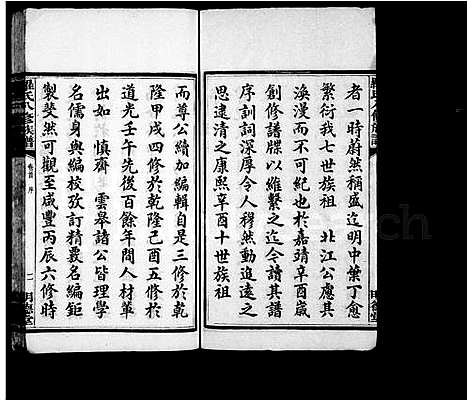 者一時蔚然稱盛迄明中葉丁愈
繁衍我七世族祖 北江公慮其
渙漫而不可紀也於嘉靖辛酉歲
創修譜牒以維繫之迄今讀其譜
序訓詞深厚令人穆然動追遠之
思逮清之康熙辛酉十世族祖
而尊公續加編輯自是三修於乾
隆甲戌四修於乾隆己酉五修於
道光壬午先後百餘年間人材萃
出如 慎齋 雲皋諸公皆理學
名儒身與編校攷訂精覈名編鉅
製斐然可觀至咸豐丙辰六修時
羅氏八修族譜
卷首 序
一
明德堂